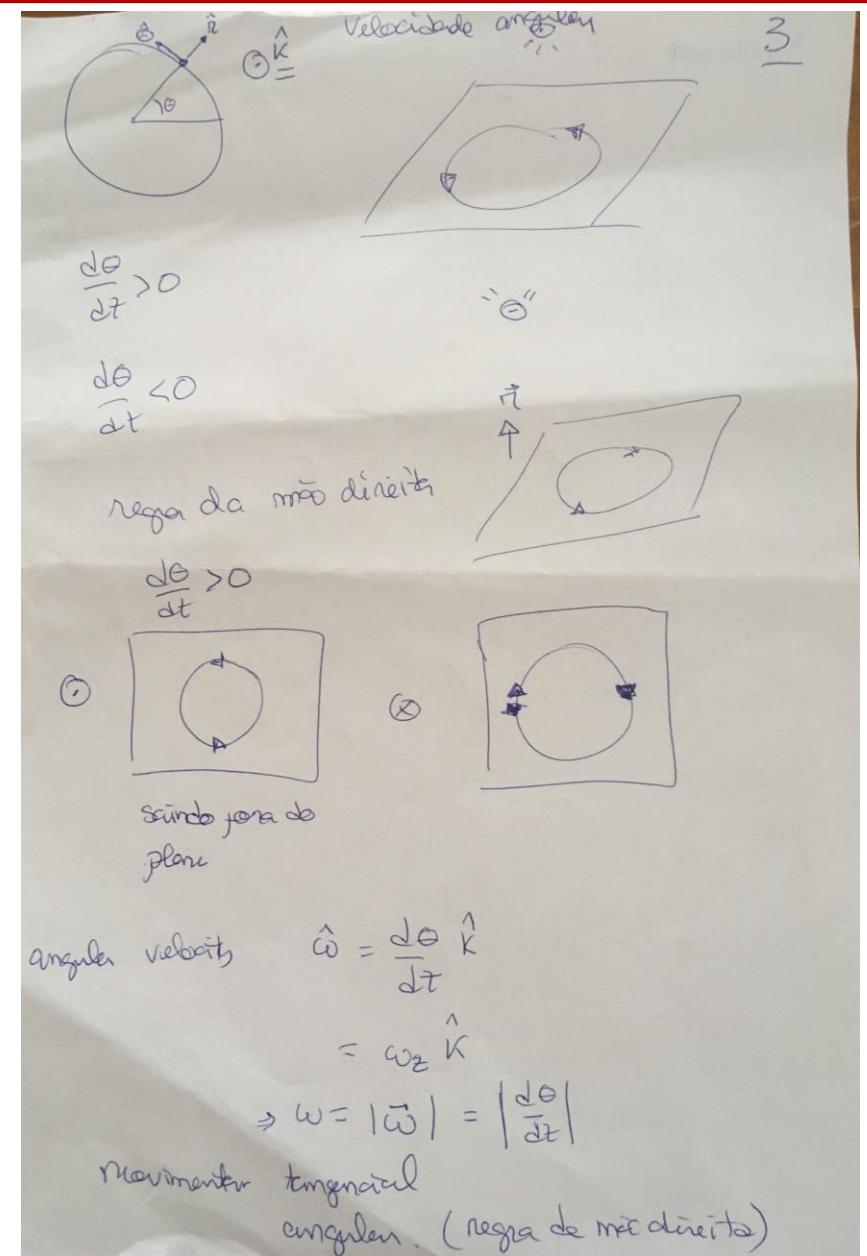 Velocidade angular
3
θ̂
r̂
k̂
θ
dθ/dt > 0
"θ"
dθ/dt < 0
n⃗
regra da mão direita
dθ/dt > 0
saindo fora do
plane
angular velocity ω̂ = dθ/dt k̂
= ω_z k̂
⇒ ω = |ω⃗| = |dθ/dt|
tangencial
angular. (regra de mão direita)